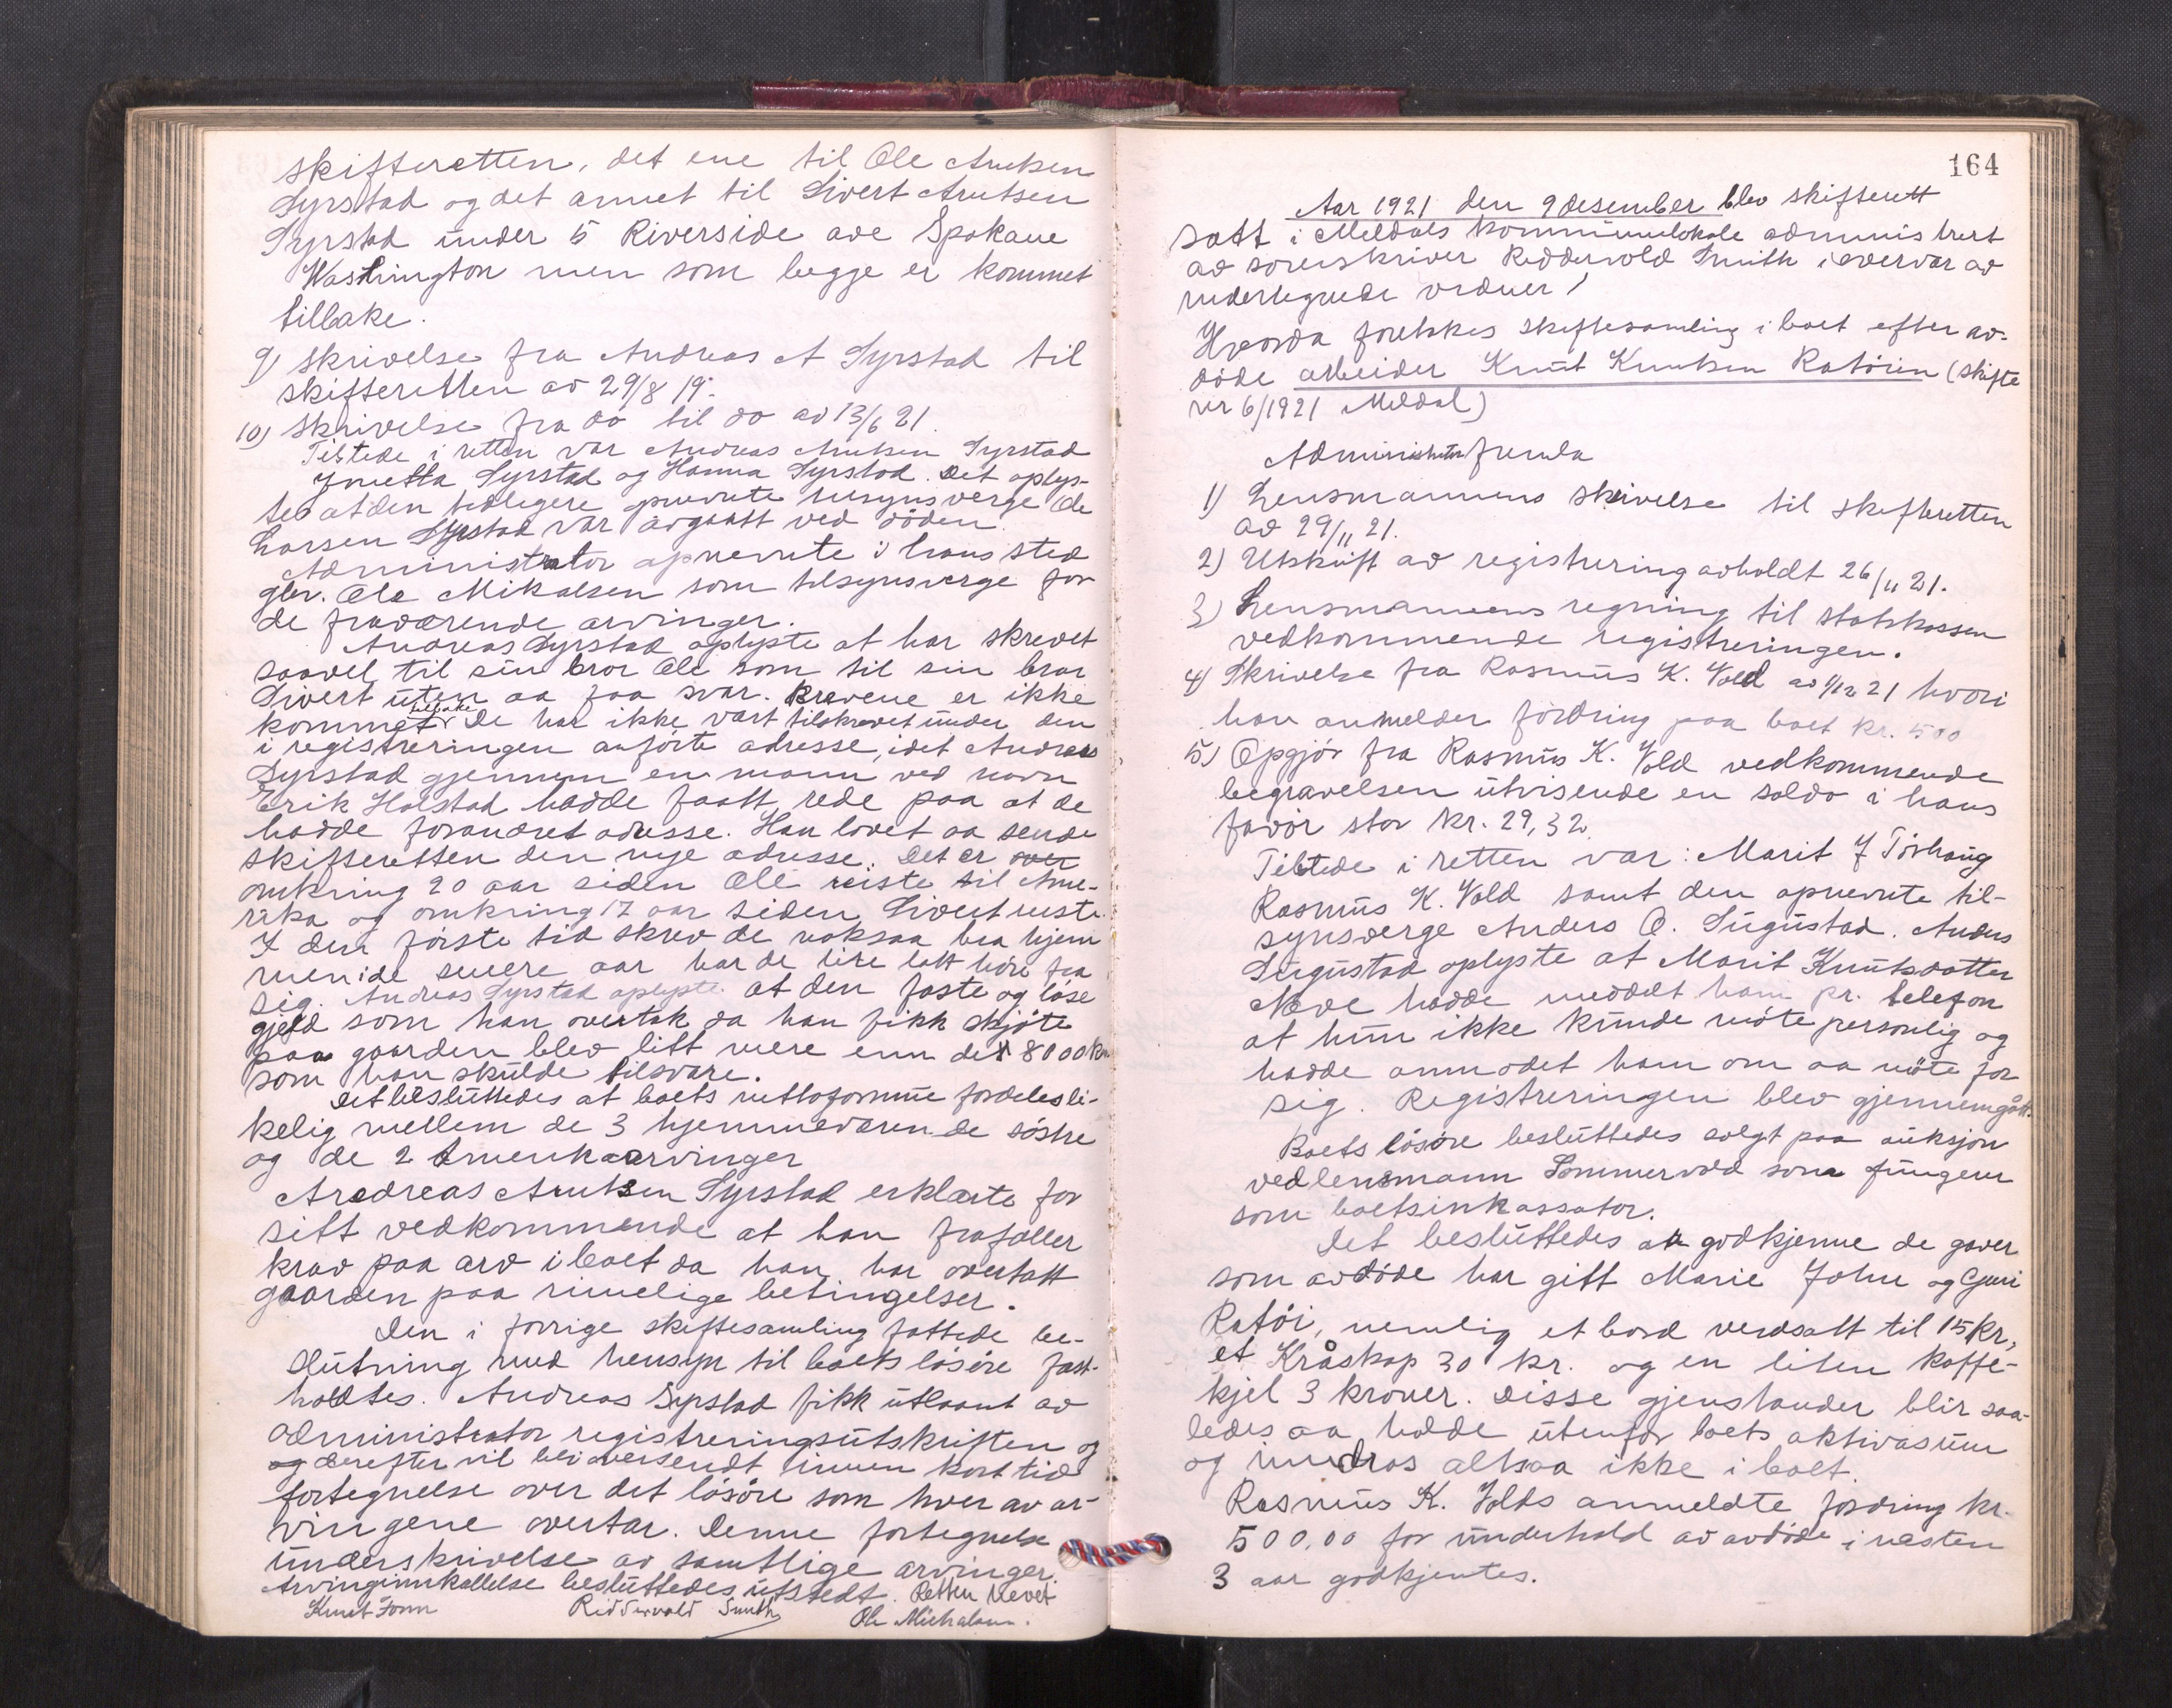 skifteretten, det ene til Ole Arntsen
Syrstad og det annet til Sivert Arntsen
Syrstad under 5 Riverside ave Spokane
Washington men som begge er kommet
tilbake.
9) skrivelse fra Andreas A Syrstad til
skifteretten av 29/8 19.
10) skrivelse fra do til do av 13/6 21.
Tilstede i retten var Andreas Arntsen Syrstad
Syrstad og Hanna Syrstad. Det oplys-
tes at den tidligere opnevnte tilsynsverge Ole
Larsen Syrstad var avgaatt ved döden.
Administrator opnevnte i hans sted
gbr. Ole Mikalsen som tilsynsverge for
de fraværende arvinger.
Andreas Syrstad oplyste at har skrevet
saavel til sin bror Ole som til sin bror
Sivert uten aa faa svar. Brevene er ikke
kommet tilbake. De har ikke vært tilskrevet under den
i registreringen anförte adresse, idet Andreas
Syrstad gjennem en mann ved navn
Erik Holstad hadde faatt rede paa at de
hadde forandret adresse. Han lovet aa sende
skifteretten den nye adresse. Det er over
omkring 20 aar siden Ole reiste til Ame-
rika og omkring 17 aar siden Sivert reiste.
I den förste tid skrev de noksaa bra hjem
men i de senere aar har de lite latt höre fra
sig. Andreas Syrstad oplyste at den faste og löse
gjeld som han overtok da han fikk skjöte
paa gaarden blev litt mere enn det 8000 kr
som han skulde tilsvare.
Det besluttedes at boets nettoformue fordeles li-
kelig mellem de 3 hjemmeværende söstre
og de 2 Amerikaarvinger
Andreas Arntsen Syrstad erklærte for
sitt vedkommende at han frafaller
krav paa arv i boet da han har overtatt
gaarden paa rimelige betingelser.
Den i forrige skiftesamling fattede be-
slutning med hensyn til boets lösöre fast-
holdtes. Andreas Syrstad fikk utlaant av
administrator registreringsutskriften og
og derefter vil bli oversendt innen kort tid
fortegnelse over det lösöre som hver av ar-
vingene overtar. Denne fortegnelse
underskrivelse av samtlige arvinger.
Arvinginnkallelse besluttedes utstedt. Retten hevet
Knut Ridderwold Smith Ole Michalsen.
164
Aar 1921 den 9 desember blev skifterett
satt i Meldals kommunelokale administrert
av sorenskriver Ridderwold Smith i overvær av
undertegnede vidner!
Hvorda foretokes skiftesamling i boet efter av-
döde arbeider Knut Knutsen Ratöien (Skifte
nr 6/1921 Meldal)
Administrator fremla
1) Lensmannens skrivelse til skifteretten
av 29/11 21.
2) Utskrift av registrering avholdt 26/11 21.
3) Lensmannens regning til statskassen
vedkommende registreringen.
4) Skrivelse fra Rasmus K. Vold av 1/12 21 hvori
han anmelder fordring paa boet kr. 500
5) Opgjör fra Rasmus K. Vold vedkommende
begravelsen utvisende en saldo i hans
favör stor kr. 29,32.
Tilstede i retten var: Marit J Törhaug
Rasmus K. Vold samt den opnevnte til-
synsverge Anders O. Sugustad. Anders
Sugustad oplyste at Marit Knutsdatter
hadde meddelt ham pr. telefon
at hun ikke kunde möte personlig og
hadde anmodet ham om aa möte for
sig. Registreringen blev gjennemgått.
Boets lösöre besluttedes solgt paa auksjon
ved lensmann Sommervold som fungerer
som boetsinkassator.
Det besluttedes at godkjenne de gaver
som avdöde har gitt Marie John og Guri
Ratöi, nemlig et bord verdsatt til 15 kr,
et Kråskap 30 kr. og en liten kaffe-
kjel 3 kroner. Disse gjenstander blir saa-
ledes aa holde utenfor boets aktivasum
og inndras altsaa ikke i boet.
Rasmus K. Volds anmeldte fordring kr.
500,00 for underhold av avdöde i næsten
3 aar godkjentes.